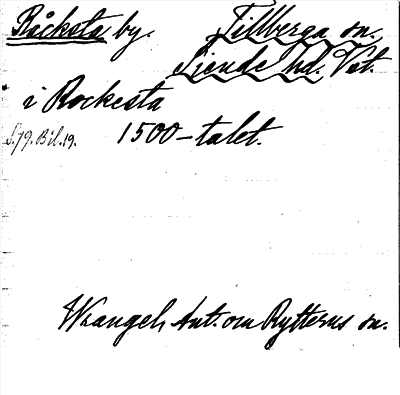 Råcksta by. Tillberga sn.
Siende hd. Vst.
i Rockesta
S.79. Bil.19. 1500-talet.
Wrangel, Ant. om Rytterns sn.